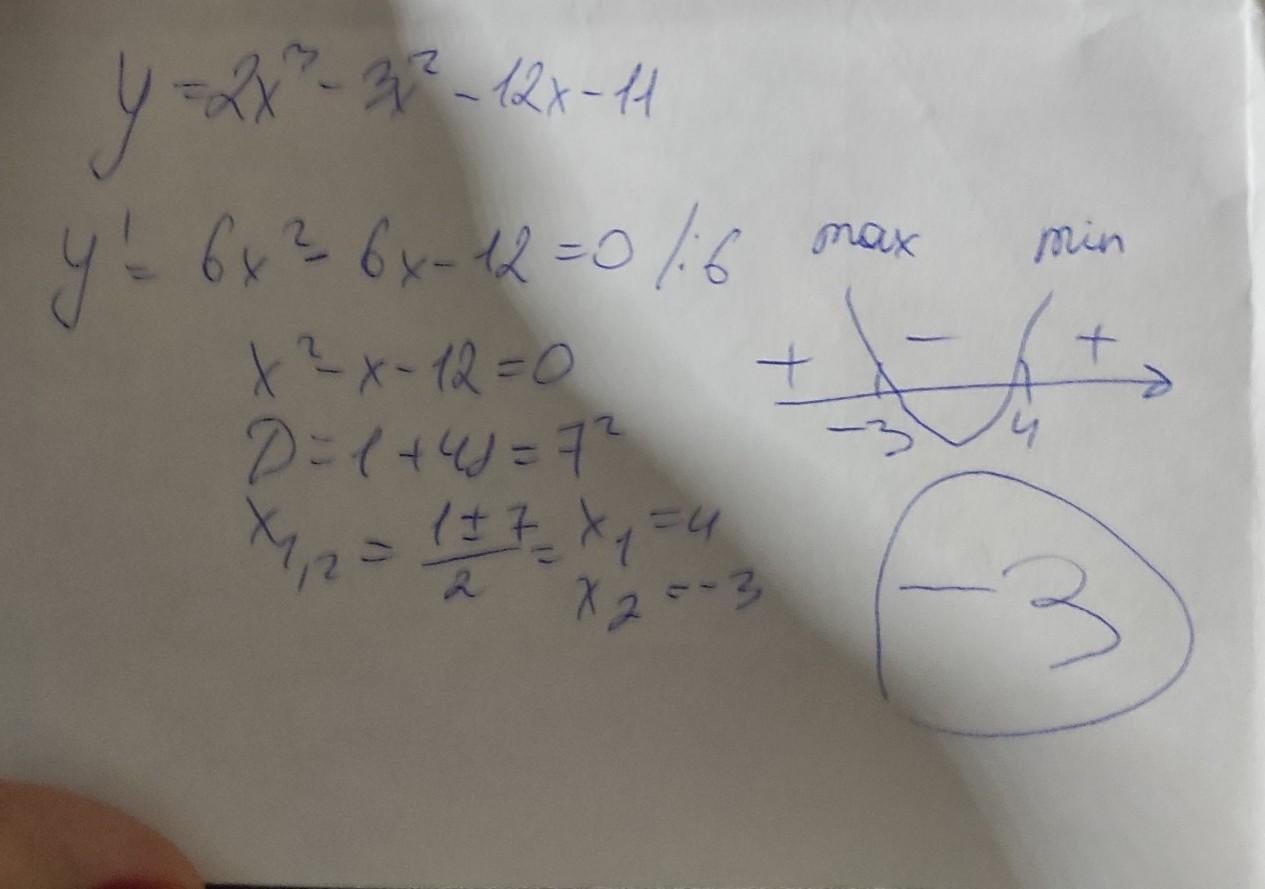 y = 2x³ - 3x² - 12x - 11
y' = 6x² - 6x - 12 = 0 /:6
x² - x - 12 = 0
D = 1 + 48 = 7²
x₁,₂ = (1 ± 7)/2 = x₁ = 4
x₂ = -3
max min
+ - +
-3 4
-3